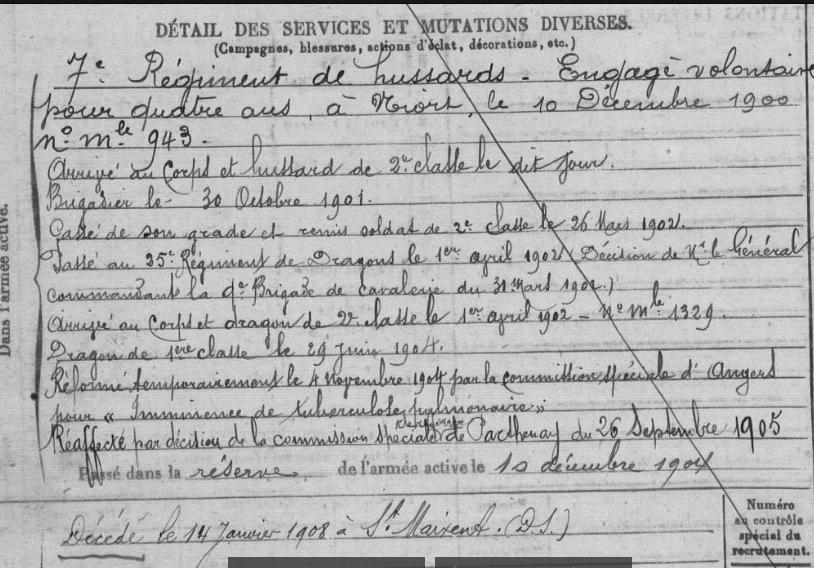 DÉTAIL DES SERVICES ET MUTATIONS DIVERSES.
(Campagnes, blessures, actions d'éclat, décorations, etc.)
7e Régiment de hussards - Engagé volontaire
pour quatre ans, à Niort, le 10 Décembre 1900
no mle 943.
Arrivé au Corps et hussard de 2e classe le dit jour.
Brigadier le 30 Octobre 1901.
Cassé de son grade et remis soldat de 2e classe le 26 Mars 1902.
Passé au 25e Régiment de Dragons le 1er april 1902 (Décision de Mr le Général
commandant la Brigade de cavalerie du 31 Mars 1902.)
Arrivé au Corps et dragon de 2e classe le 1er april 1902 - No mle 1329.
Dragon de 1ère classe le 29 juin 1904.
Réformé temporairement le 4 novembre 1904 par la commission spéciale d'Angers
pour « Imminence de tuberculose pulmonaire »
Réaffecté par décision de la commission spéciale de Parthenay du 26 Septembre 1905
Passé dans la réserve de l'armée active le 10 décembre 1904
Décédé le 14 Janvier 1908 à St Maixent. (D.S.)
Dans l'armée active.
Numéro
au contrôle
spécial du
recrutement.